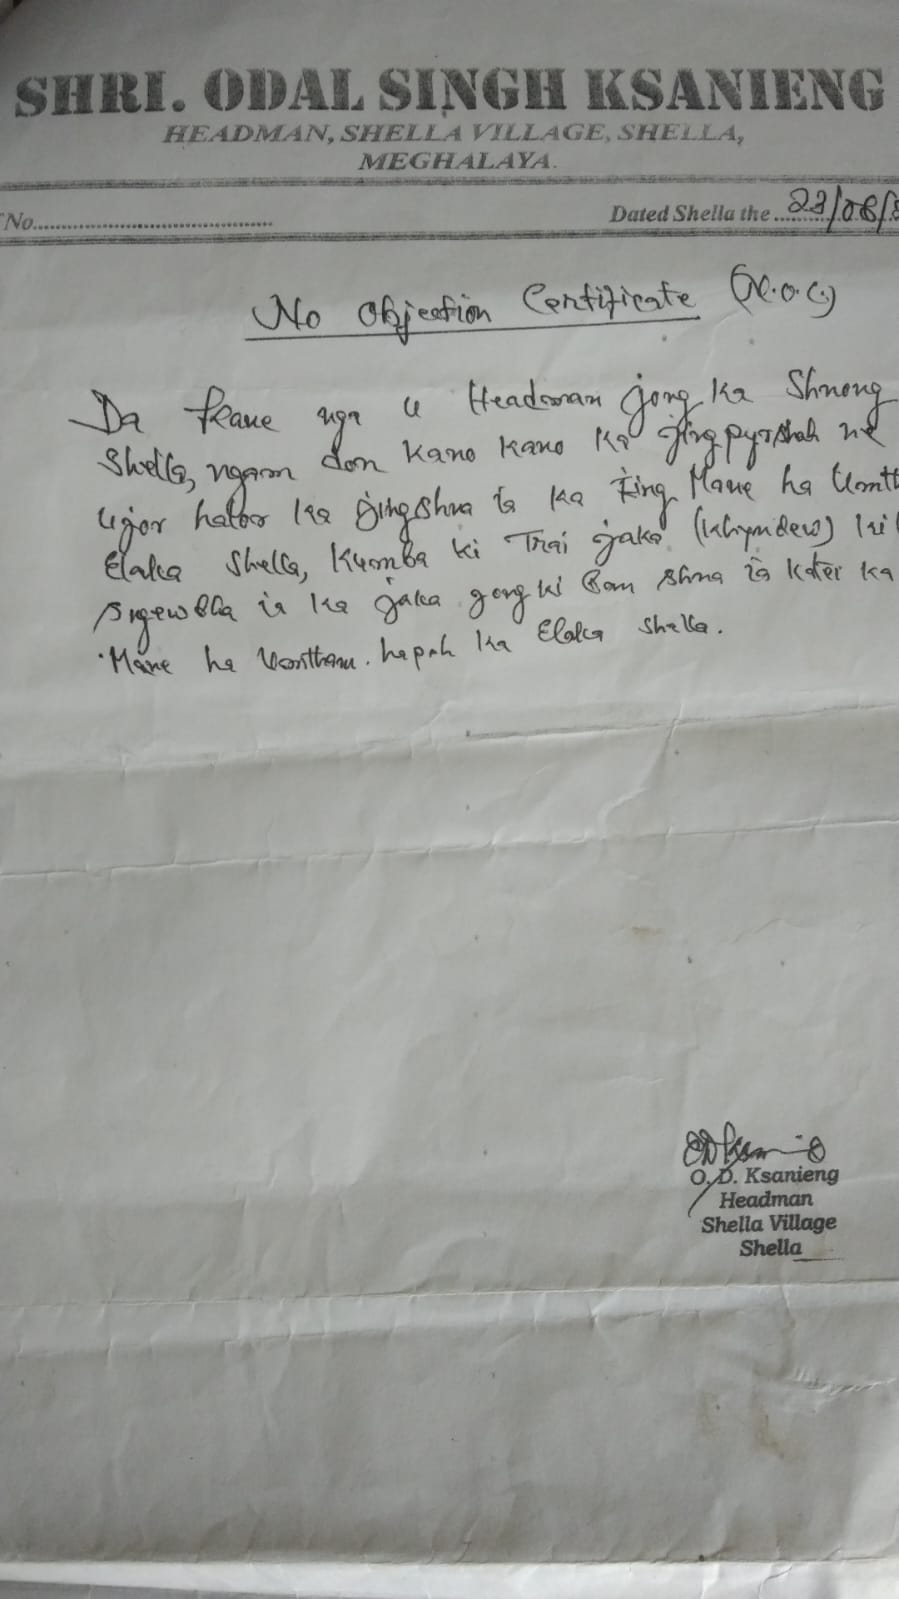 SHRI. ODAL SINGH KSANIENG
HEADMAN, SHELLA VILLAGE, SHELLA,
MEGHALAYA.
No.
Dated Shella the 23/08/
No Objection Certificate (N.O.C.)
Da kane nga u Headman jong ka Shnong
Shella, ngam don kano kano ka jingpyrshah ne
ujor halor ka jingshna ïa ka King Mane ha
Elaka Shella, kumba ki Trai jaka (khyndew) ki
ïa ka jaka jong ki ban shna ïa katei ka
Mane ha hapoh ka Elaka Shella.
O. D. Ksanieng
Headman
Shella Village
Shella